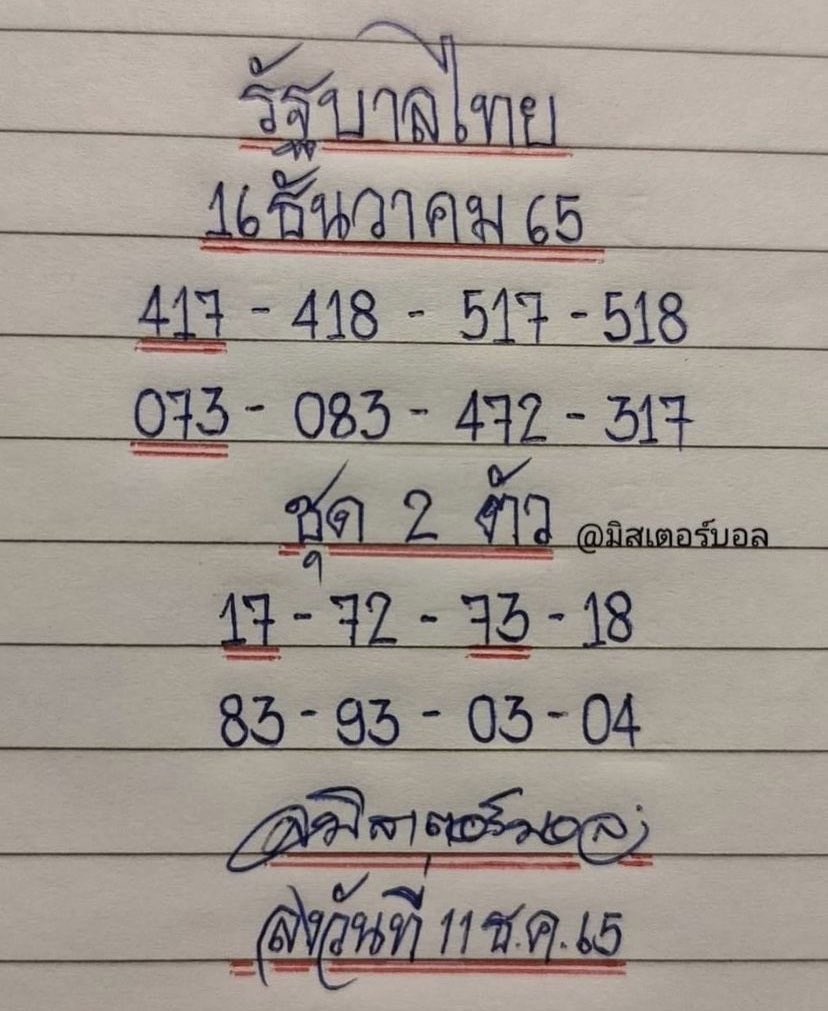 รัฐบาลไทย
16 ธันวาคม 65
417 - 418 - 517 - 518
073 - 083 - 472 - 317
ชุด 2 ตัว @มิสเตอร์บอล
17 - 72 - 73 - 18
83 - 93 - 03 - 04
@มิสเตอร์บอล
ลงวันที่ 11 ธ.ค. 65